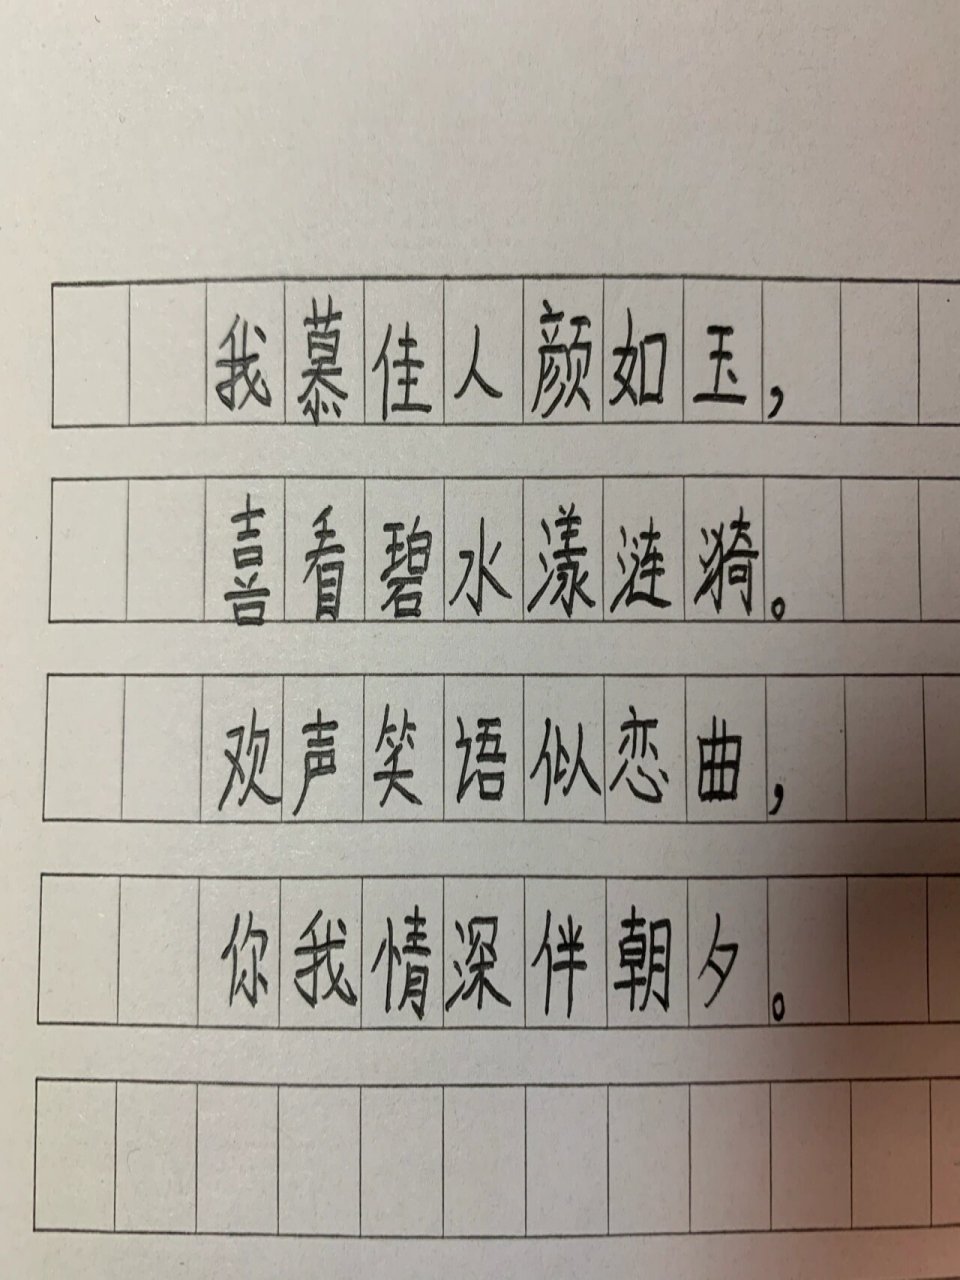 我慕佳人颜如玉，
喜看碧水漾涟漪。
欢声笑语似恋曲，
你我情深伴朝夕。